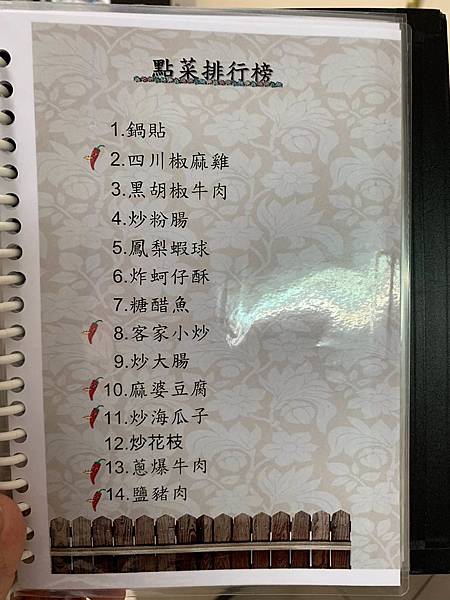 點菜排行榜
1.鍋貼
2.四川椒麻雞
3.黑胡椒牛肉
4.炒粉腸
5.鳳梨蝦球
6.炸蚵仔酥
7.糖醋魚
8.客家小炒
9.炒大腸
10.麻婆豆腐
11.炒海瓜子
12.炒花枝
13.蔥爆牛肉
14.鹽豬肉